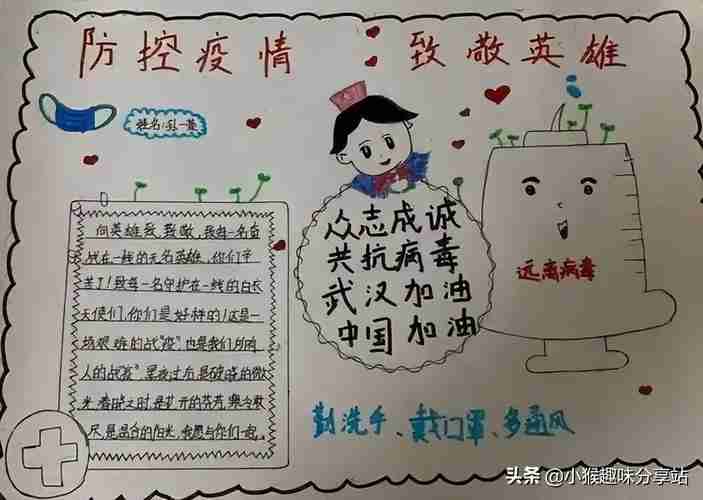 防控疫情 致敬英雄
姓名:
众志成诚
共抗病毒
武汉加油
中国加油
远离病毒
向英雄致敬,致每一名奋
战在一线的无名英雄,你们辛
苦了!致每一名守护在一线的白衣
天使们,你们是好样的!这是一
场艰难的战"疫"也是我们所有
人的战"疫",黑夜过后是破晓的微
光,春暖之时,是盛开的芬芳,寒冬散
尽是温合的阳光,我愿与你们一起。
勤洗手、戴口罩、多通风
头条 @小猴趣味分享站